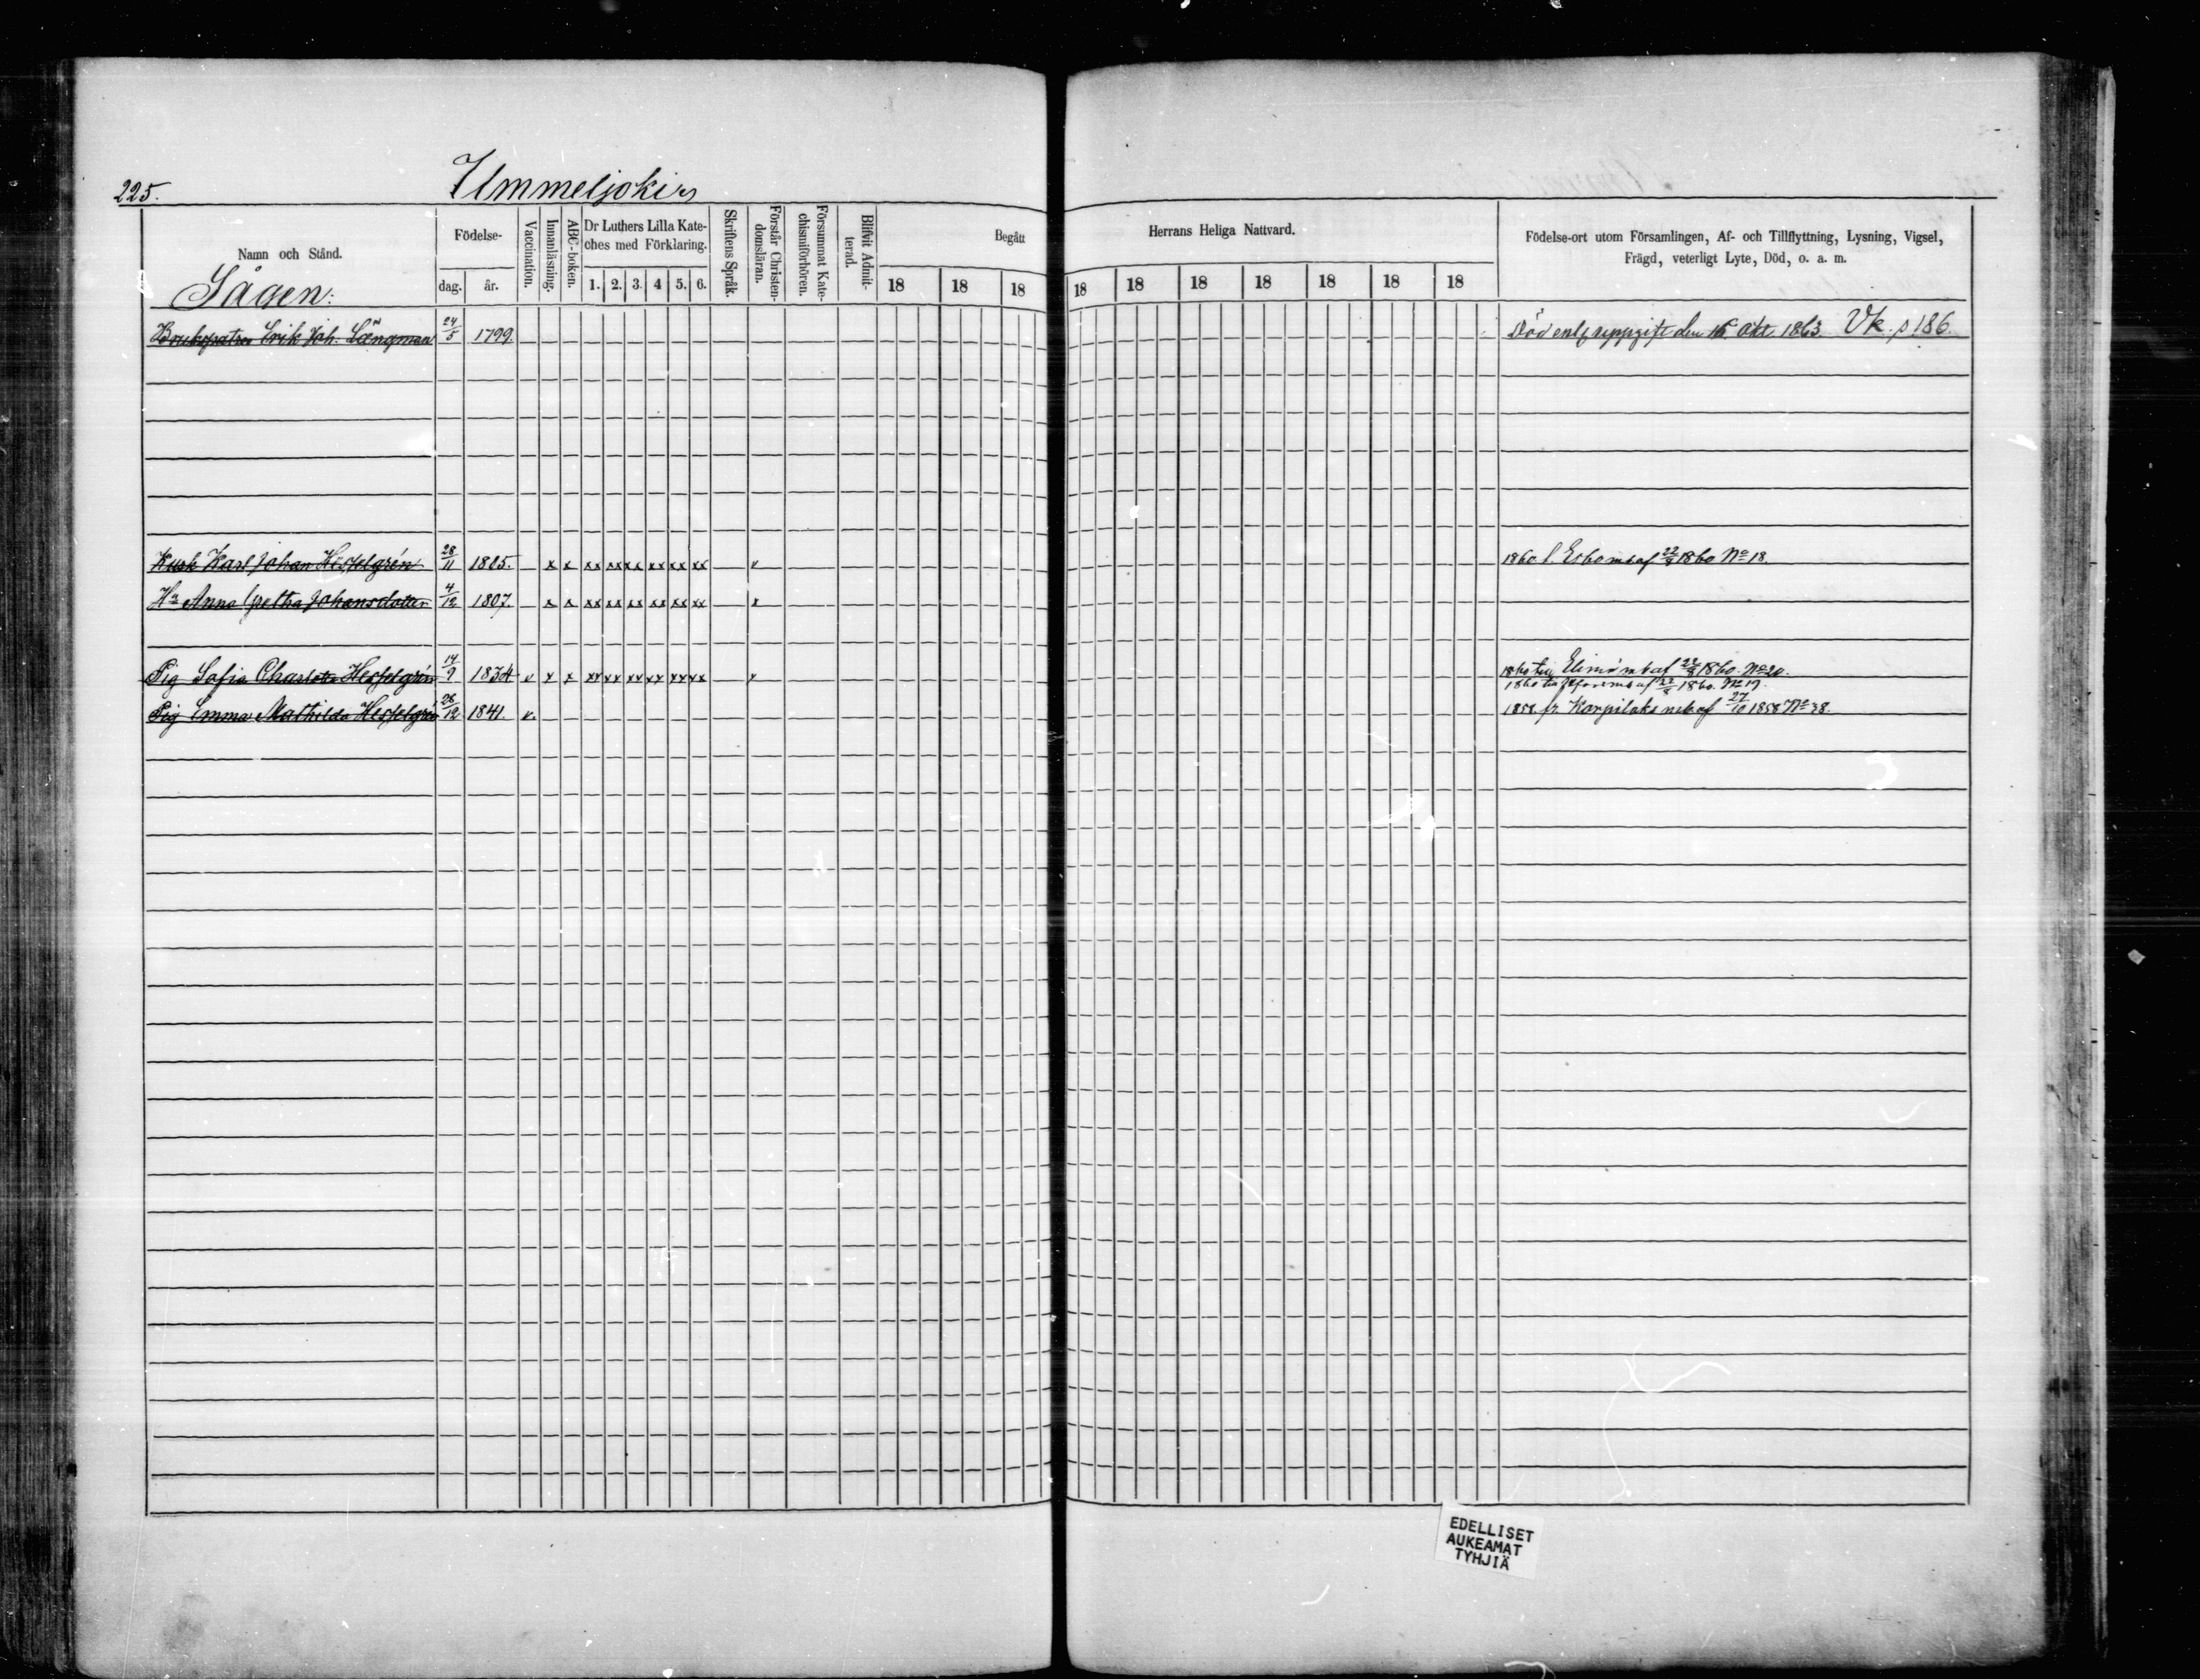 225.
Ummeljoki
Namn och Stånd.
Födelse-
dag.
år.
Vaccination.
Innanläsning.
ABC-boken.
Dr Luthers Lilla Kate-
ches med Förklaring.
1. 2. 3. 4 5. 6.
Skriftens Språk.
Förstår Christen-
domsläran.
Försummat Kate-
chismiförhören.
Blifvit Admit-
terad.
Begått
18 18 18
Herrans Heliga Nattvard.
18 18 18 18 18 18 18
Födelse-ort utom Församlingen, Af- och Tillflyttning, Lysning, Vigsel,
Frägd, veterligt Lyte, Död, o. a. m.
Sågen:
Brukspatron Erik Joh. Längman 24/5 1799. Död enl. uppgift den 16 Okt. 1863. Vk. p 186.
Kusk Karl Johan Hesselgrén 28/11 1805. x x xx xx xx xx xx xx v 1860 t. Esbo m. af 22/8 1860 No 18.
Ha Anna Gretha Johansdotter 4/12 1807. x x xx xx xx xx xx xx x
Pig Sofia Charlotta Hesselgrén 14/9 1834 v x x xx xx xx xx xx xx v 1860 till Elimä m. af 22/8 1860. No 20.
1860 till m. af 22/8 1860. No 19.
Pig Emma Mathilda Hesselgrén 26/12 1841. v. 1858 fr. Karpilaks m. af 27/10 1858 No 38.
EDELLISET
AUKEAMAT
TYHJIÄ